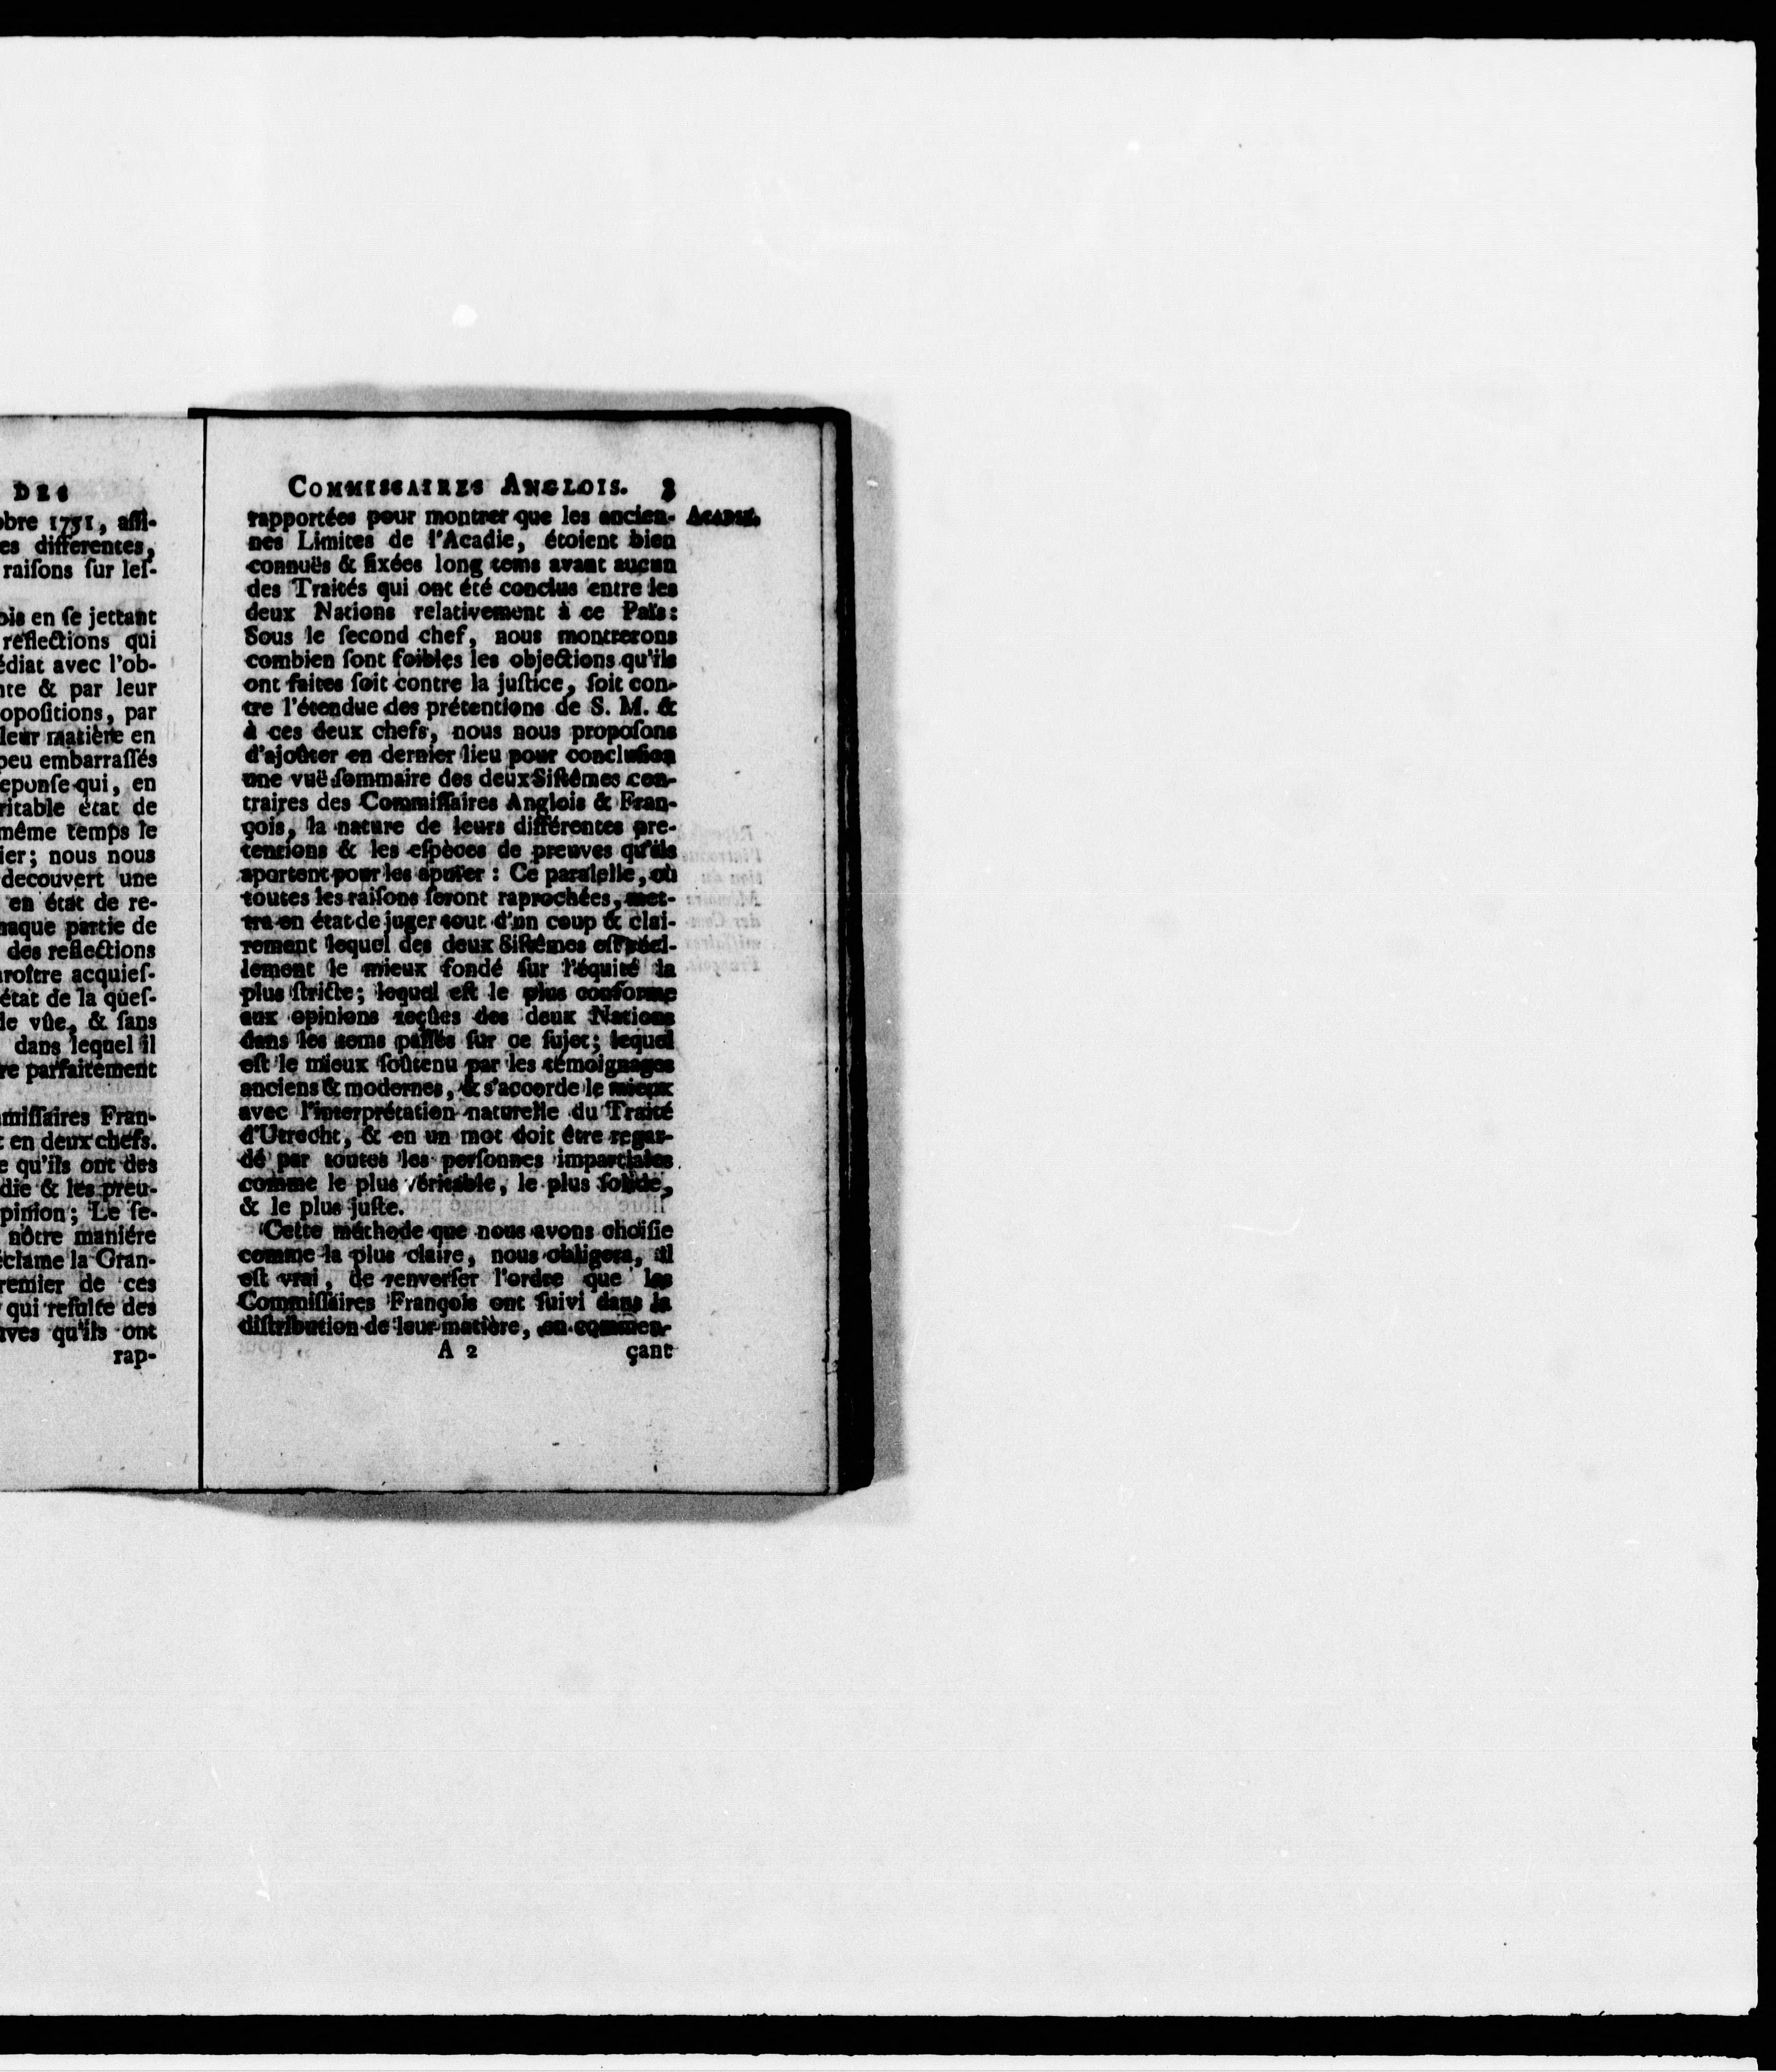 DES
obre 1751, aſſi-
es differentes,
raiſons ſur leſ-
ois en ſe jettant
réflections qui
édiat avec l'ob-
nte & par leur
opoſitions, par
leur matière en
peu embarraſſés
eponſe qui, en
ritable état de
même temps le
ier; nous nous
decouvert une
en état de re-
haque partie de
des reflections
aroître acquieſ-
état de la queſ-
de vûe, & ſans
dans lequel il
re parfaitement
miſſaires Fran-
t en deux chefs.
e qu'ils ont des
die & les preu-
pinion; Le ſe-
nôtre maniére
éclame la Gran-
remier de ces
qui reſulte des
uves qu'ils ont
rap-
COMMISSAIRES ANGLOIS. 3
ACADIE.
rapportées pour montrer que les ancien-
nes Limites de l'Acadie, étoient bien
connuës & fixées long tems avant aucun
des Traités qui ont été conclus entre les
deux Nations relativement à ce Païs:
Sous le ſecond chef, nous montrerons
combien ſont foibles les objections qu'ils
ont faites ſoit contre la juſtice, ſoit con-
tre l'étendue des prétentions de S. M. &
à ces deux chefs, nous nous propoſons
d'ajoûter en dernier lieu pour concluſion
une vuë ſommaire des deux Siſtêmes con-
traires des Commiſſaires Anglois & Fran-
çois, la nature de leurs différentes pre-
tentions & les eſpèces de preuves qu'ils
aportent pour les apuïer : Ce paralelle, où
toutes les raiſons ſeront raprochées, met-
tra en état de juger tout d'un coup & clai-
rement lequel des deux Siſtêmes eſt réel-
lement le mieux fondé ſur l'équité la
plus ſtricte; lequel eſt le plus conforme
aux opinions reçûes des deux Nations
dans les tems paſſés ſur ce ſujet; lequel
eſt le mieux ſoûtenu par les témoignages
anciens & modernes, & s'accorde le mieux
avec l'interprétation naturelle du Traité
d'Utrecht, & en un mot doit être regar-
dé par toutes les perſonnes impartiales
comme le plus véritable, le plus ſolide,
& le plus juſte.
Cette méthode que nous avons choiſie
comme la plus claire, nous obligera, il
eſt vrai, de renverſer l'ordre que les
Commiſſaires François ont ſuivi dans la
diſtribution de leur matière, en commen-
A 2 çant